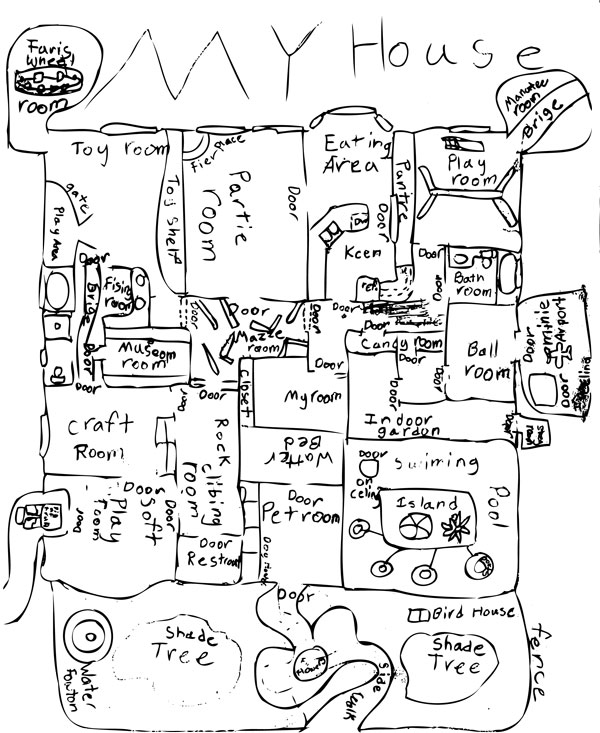 MY House
Faris
wheel
room
Manatee
room
Brige
Toy room
Toy Shelf
FierPlace
Partie
room
Door
Eating
Area
Pantre
Door
Play
room
gate
Play Area
Door
Fising
room
Brige
Door
Museom
room
Door
Door
Door
Mazze
room
Kceen
ref.
Door
Door
Door
Bath
room
Candy room
Door
Door
Door
Ball
room
Door
Airport
Door
Closet
My room
Door
Door
Craft
Room
Rock
clibing
room
Watter
Bed
Indoor
gardon
Door
Door
on
celing
Swiming
Pool
Island
Door
Play
room
Soft
Door
Door
Door
Pet room
Door
Restront
Door
Bird House
Shade
Tree
Shade
Tree
Water
Fownton
Side
Walk
fence